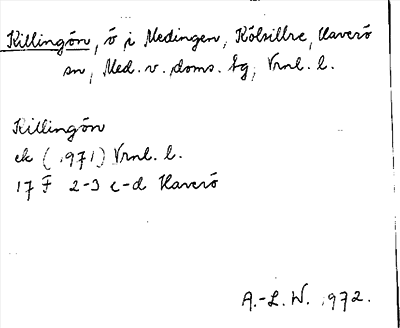 Killingön, ö i Medingen, Kölsillre, Haverö
sn, Med. v. doms. tg, Vrnl. l.
Killingön
ek (1971) Vrnl. l.
17 F 2-3 c-d Haverö
A.-L. W. 1972.